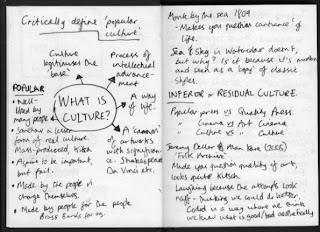 Critically define 'popular
culture'.
Culture
legitimises the
base.
Process of
intellectual
advance-
ment
POPULAR
• Well-
liked by
many people
• Somehow a lesser
form of real culture.
• Mass-produced, Kitch
• Aspires to be important,
but fail.
• Made by the people
themselves.
• Made by people for the people.
Brass Bands for eg.
WHAT IS
CULTURE?
'A way
of life'.
A canon
of artworks
with significan-
ce. Shakespeare
Da Vinci etc.
Monk by the sea 1809
- Makes you question
life.
Sea & Sky in Watercolor doesn't,
but why? Is it because it's modern
and seen as a 'copy' of classic
styles.
INFERIOR or RESIDUAL CULTURE.
Popular press vs Quality Press.
" Cinema vs Art Cinema
" Culture vs " Culture
Jeremy Deller & Alan Kane (2005)
'Folk Archive'
Made you question quality of art,
looks quite Kitsch.
Laughing because the attempts look
naff - Thinking we could do better.
Coded in a way where we think
we know what is good/bad aesthetically